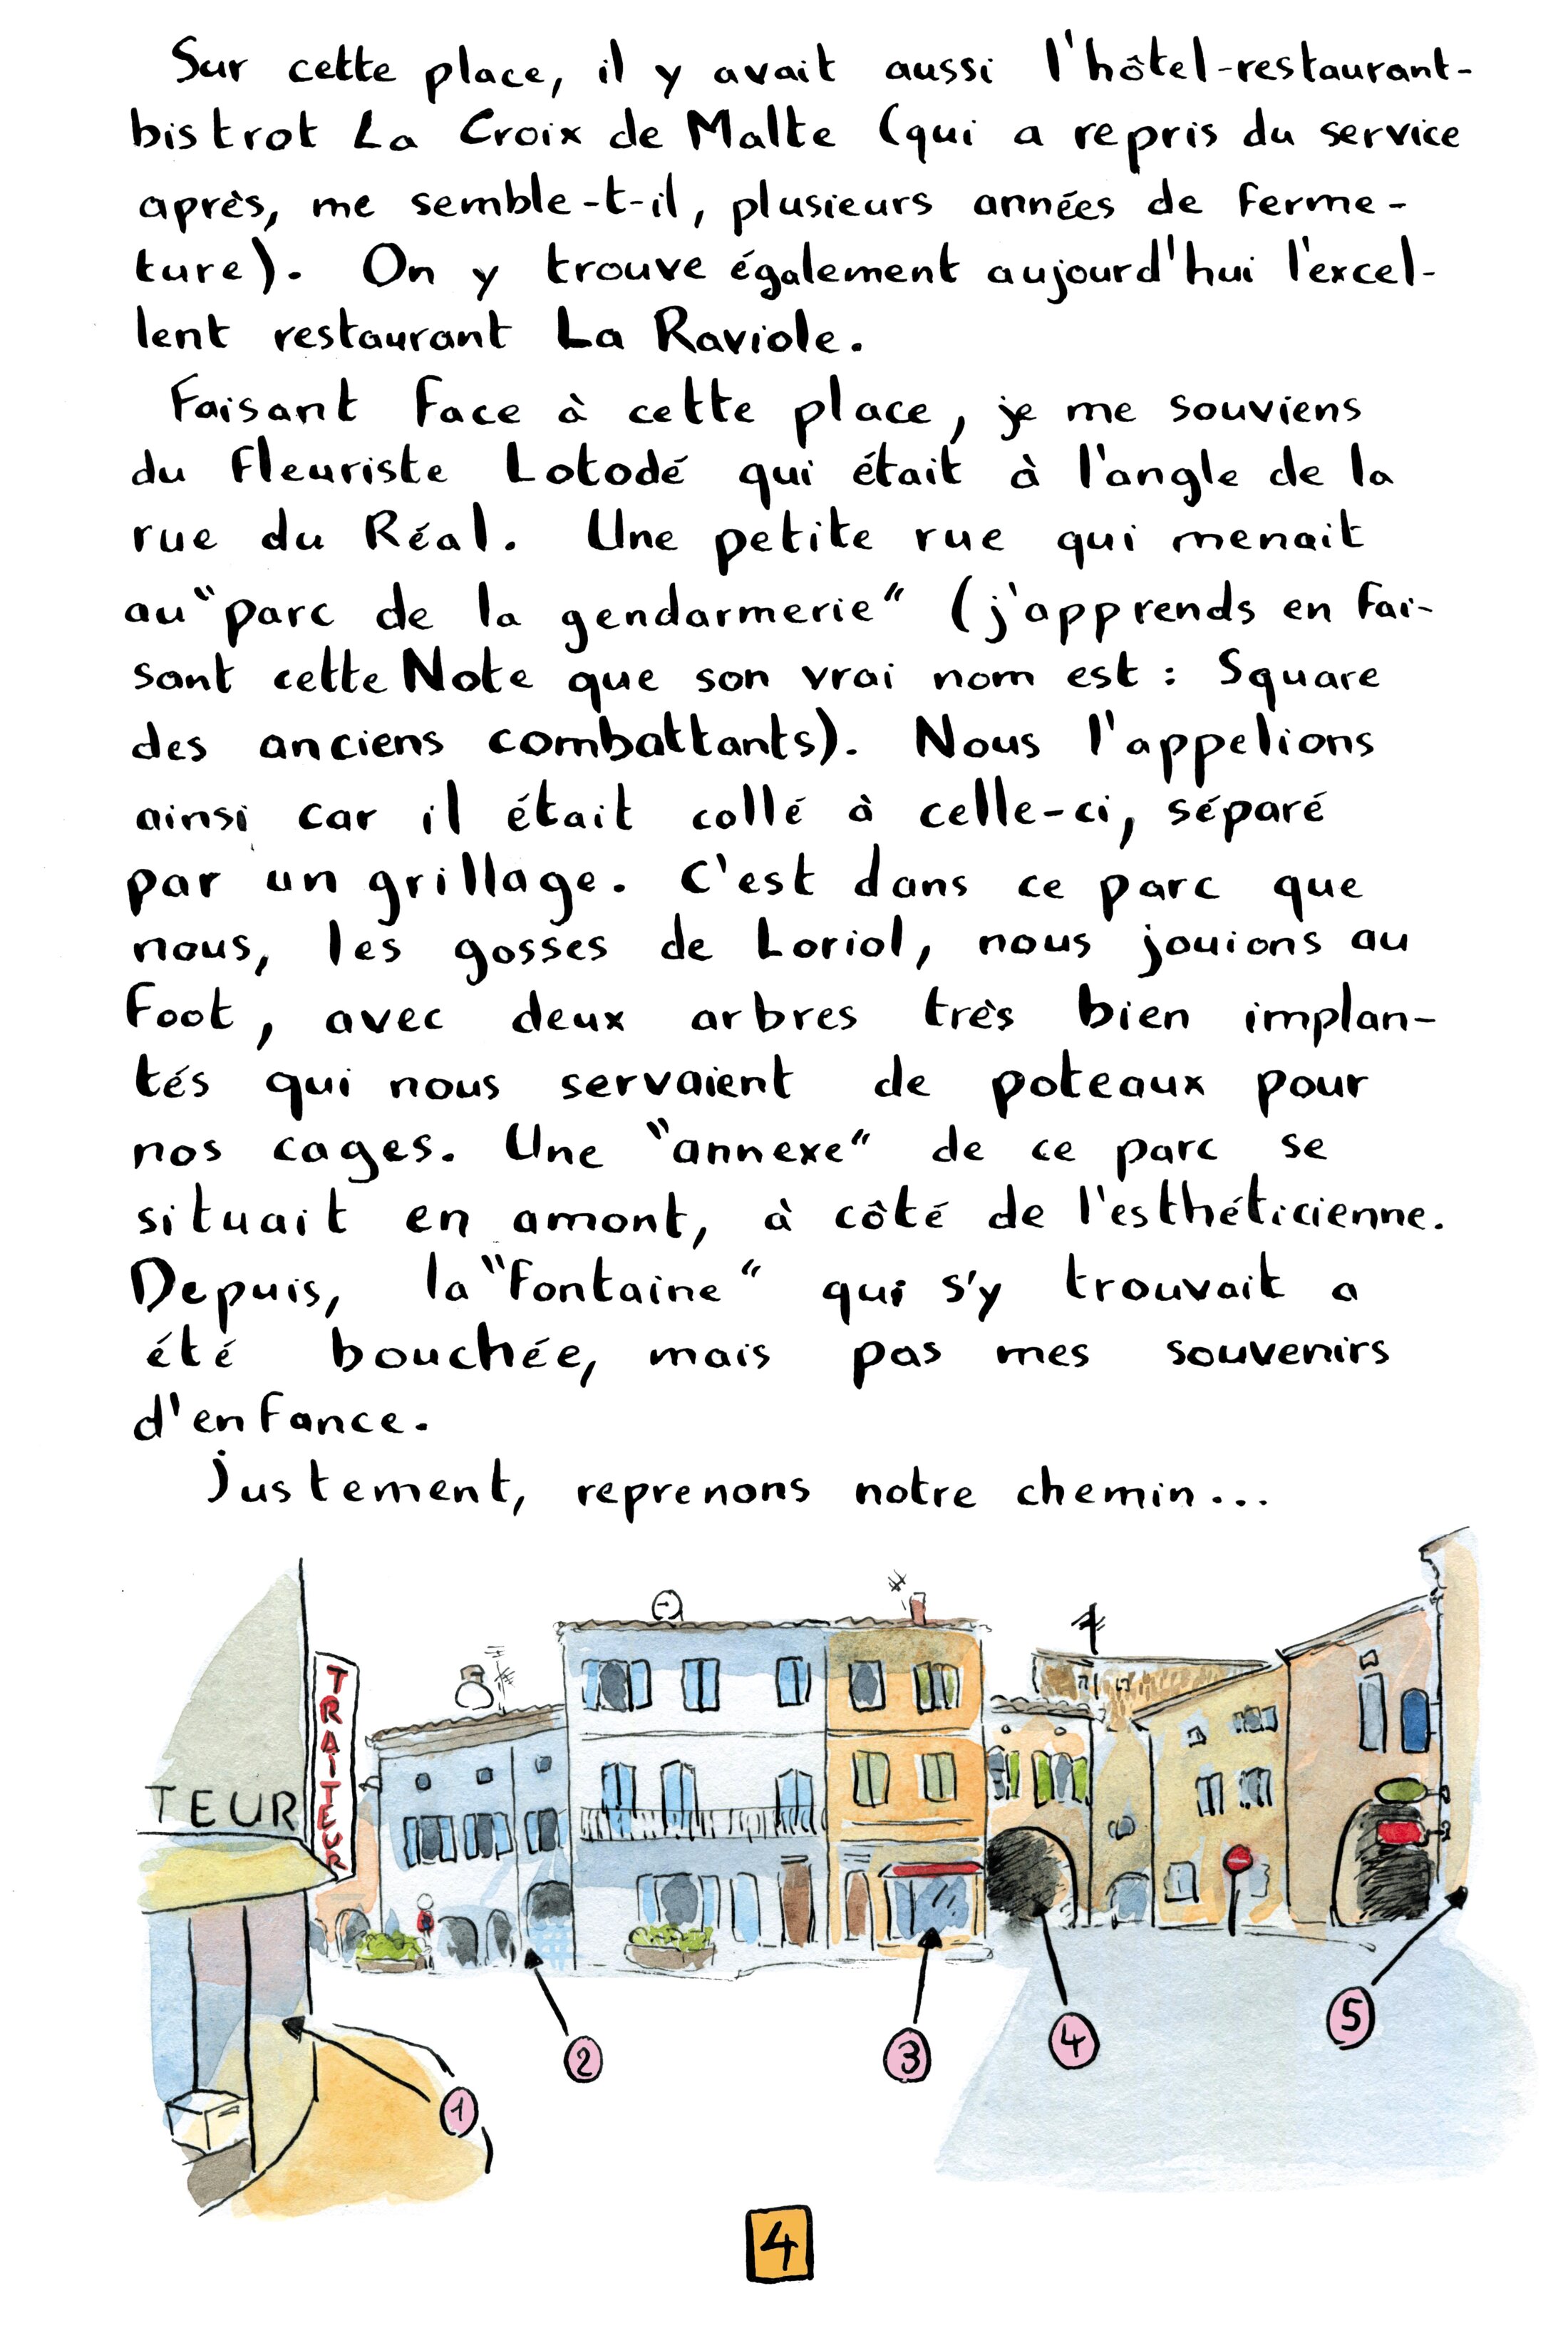 Sur cette place, il y avait aussi l'hôtel-restaurant-
bistrot La Croix de Malte (qui a repris du service
après, me semble-t-il, plusieurs années de ferme-
ture). On y trouve également aujourd'hui l'excel-
lent restaurant La Raviole.
Faisant face à cette place, je me souviens
du fleuriste Lotodé qui était à l'angle de la
rue du Réal. Une petite rue qui menait
au "parc de la gendarmerie" (j'apprends en fai-
sant cette Note que son vrai nom est : Square
des anciens combattants). Nous l'appelions
ainsi car il était collé à celle-ci, séparé
par un grillage. C'est dans ce parc que
nous, les gosses de Loriol, nous jouions au
foot, avec deux arbres très bien implan-
tés qui nous servaient de poteaux pour
nos cages. Une "annexe" de ce parc se
situait en amont, à côté de l'esthéticienne.
Depuis, la "fontaine" qui s'y trouvait a
été bouchée, mais pas mes souvenirs
d'enfance.
Justement, reprenons notre chemin...
TRAITEUR
TEUR
1
2
3
4
5
4